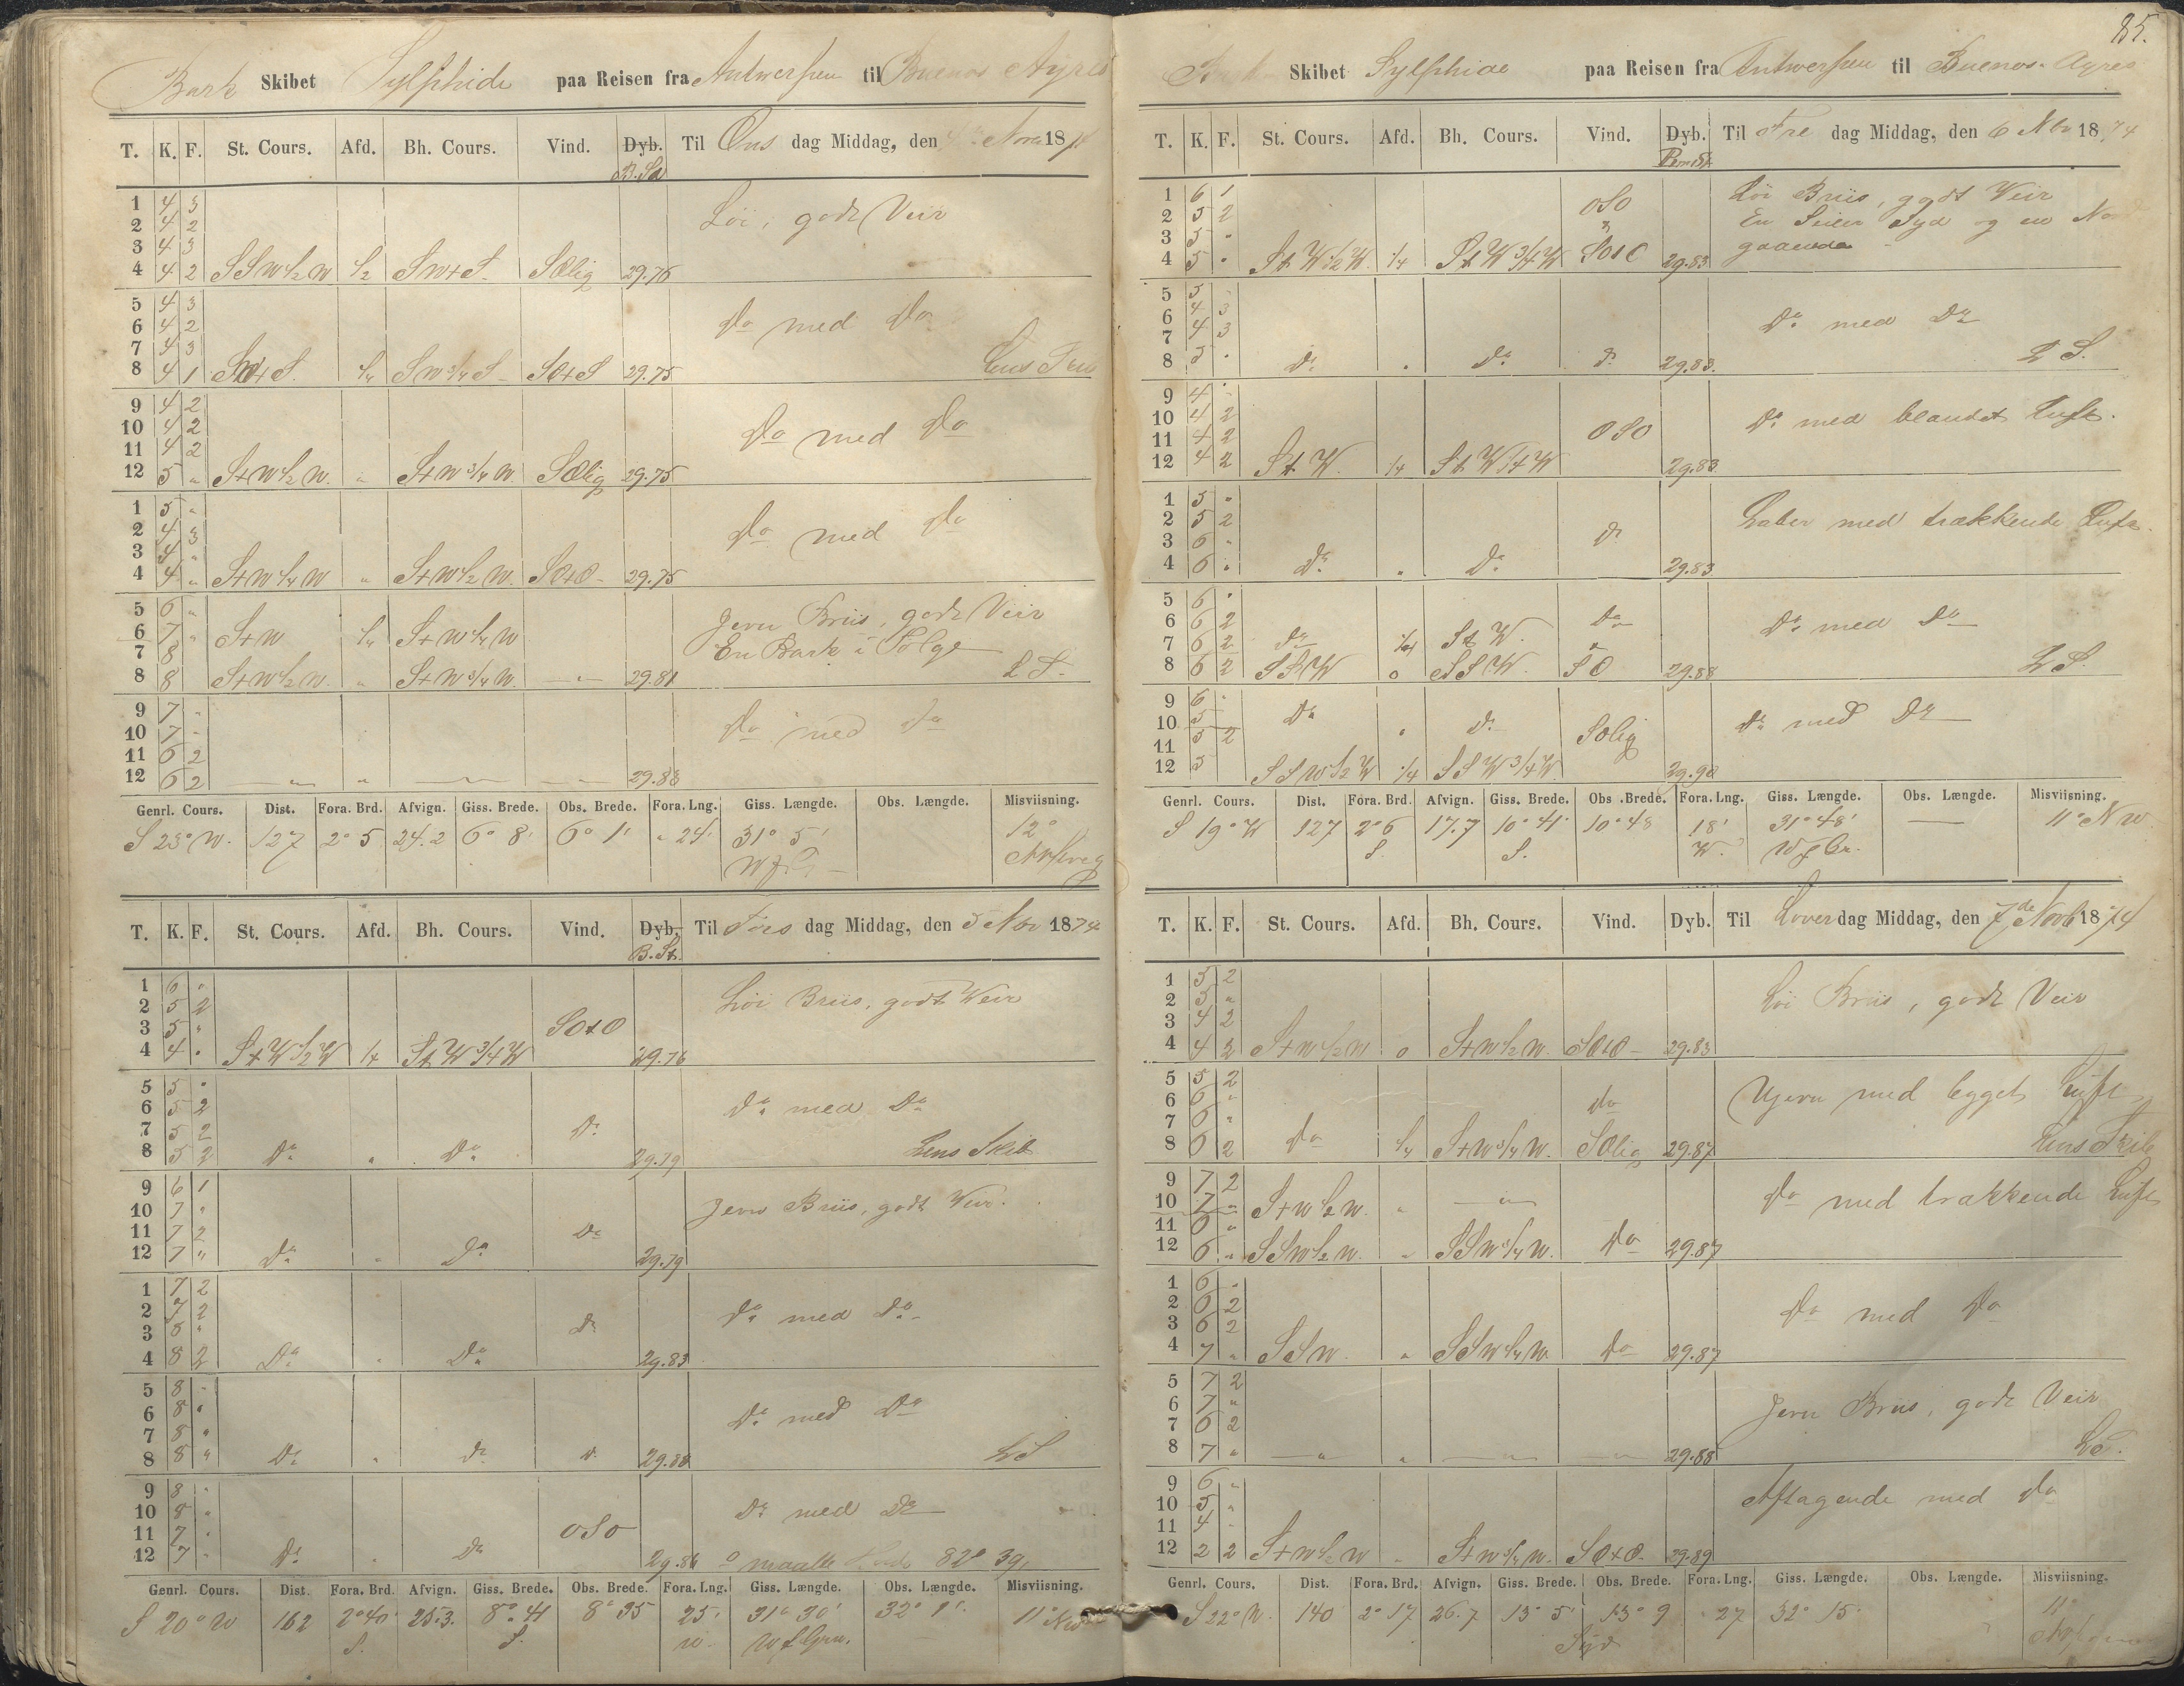 Bark Skibet Sylphide paa Reisen fra Antwerpen til Buenos Ayres
T. K. F. St. Cours. Afd. Bh. Cours. Vind. Dyb. Til Ons dag Middag, den 4 Novr 1874
B. St
1 4 3 Löi, godt Veir
2 4 2
3 4 3
4 4 2 SSW 1/2 W 1/2 SWtS. SOlig 29.76
5 4 3
6 4 2 Do med Do
7 4 3
8 4 1 SWtS. 1/4 SW 3/4 S SOtS 29.75 Lens
9 4 2
10 4 2 Do med Do
11 4 2
12 5 " StW 1/2 W. " StW 3/4 W. SOlig 29.75
1 5 "
2 4 3 Do med Do
3 4 "
4 4 " StW 1/4 W " StW 1/2 W. SOtO 29.75
5 6 " Jevn Briis, godt Veir
6 7 " StW 1/4 StW 1/4 W En Bark i Følge
7 8
8 8 StW 1/2 W. " StW 3/4 W. " 29.81 L S.
9 7 "
10 7 " Do med Do
11 6 2
12 6 2 " " " " 29.88
Genrl. Cours. Dist. Fora. Brd. Afvign. Giss. Brede. Obs. Brede. Fora. Lng. Giss. Længde. Obs. Længde. Misviisning.
S 23° W. 127 2° 5 24.2 6° 8' 6° 1' " 24' 31° 5' 12°
T. K. F. St. Cours. Afd. Bh. Cours. Vind. Dyb. Til Tors dag Middag, den 5 Nov 1874
B. St.
1 6 " Löi Briis, godt Veir
2 5 2
3 5 " SOtO
4 4 " StW 1/2 W 1/4 StW 3/4 W 29.76
5 5 "
6 5 2 Do med Do
7 5 2 Do
8 5 2 Do " Do 29.79 Lens Skib
9 6 1
10 7 " Jevn Briis, godt Veir.
11 7 2 Do
12 7 " Do " Do 29.79
1 7 2
2 7 2 Do med Do
3 8 " Do
4 8 2 Do " Do 29.83
5 8 "
6 8 " Do med Do
7 8 "
8 8 " Do " Do Do 29.88 L S
9 8 "
10 8 " Do med Do
11 7 " OSO
12 7 " Do " Do 29.86 maalte 82° 39
Genrl. Cours. Dist. Fora. Brd. Afvign. Giss. Brede. Obs. Brede. Fora. Lng. Giss. Længde. Obs. Længde. Misviisning.
S 20° W 162 2° 40' 25.3. 8° 41 8° 35 25' 31° 30' 32° 1'. 11° NW
S. S. W. W f Grn.
85.
Skibet Sylphide paa Reisen fra Antwerpen til Buenos Ayres
T. K. F. St. Cours. Afd. Bh. Cours. Vind. Dyb. Til Fre dag Middag, den 6 Nbr 1874
1 6 1 Löi Briis, godt Veir
2 5 2 OSO En Seiler Syd og en Nord
3 5 " gaaende
4 5 " StW 1/2 W. 1/4 StW 3/4 W SOtO 29.83
5 5 "
6 4 3 Do med Do
7 4 3
8 5 " Do " Do Do 29.83. L S.
9 4 "
10 4 2 Do med blandet Luft.
11 4 2 OSO
12 4 2 StW. 1/4 StW 1/4 W 29.83
1 5 "
2 5 2 Laber med trækkende Luft.
3 6 " Do
4 6 " Do " Do 29.83
5 6 "
6 6 2 Do Do med Do
7 6 2 Do 1/4 StW. "
8 6 2 SSW 0 SSW. SO 29.88 L S.
9 6 "
10 5 Do " Do Do med Do
11 5 2 SOlig
12 5 SSW 1/2 W 1/4 SSW 3/4 W. 29.90
Genrl. Cours. Dist. Fora. Brd. Afvign. Giss. Brede. Obs. Brede. Fora. Lng. Giss. Længde. Obs. Længde. Misviisning.
S 19° W 127 2° 6 17.7 10° 41' 10° 48 18' 31° 48' 11° NW
S. S. W. W f Gr.
T. K. F. St. Cours. Afd. Bh. Cours. Vind. Dyb. Til Löver dag Middag, den 7de Novb 1874
1 5 2
2 5 " Löi Briis, godt Veir
3 4 2
4 4 2 StW 1/2 W 0 StW 1/2 W. SOtO 29.83
5 5 2
6 6 " Do Ujevn med bygget Luft
7 6 "
8 6 2 Do 1/4 StW 3/4 W. SOlig 29.87 Lens Skib
9 7 2
10 7 " StW 1/2 W. " " Do med trækkende Luft
11 6 "
12 6 " SSW 1/2 W. " SSW 3/4 W. Do 29.87
1 6 "
2 6 2 Do med Do
3 6 2
4 7 " SSW. " SSW 1/4 W. Do 29.87
5 7 2
6 7 " Jevn Briis, godt Veir
7 6 2
8 7 " " " " " 29.88 LS.
9 6 "
10 5 " Aftagende med Do
11 4 "
12 2 2 StW 1/2 W " StW 3/4 W. SOtO 29.89
Genrl. Cours. Dist. Fora. Brd. Afvign. Giss. Brede. Obs. Brede. Fora. Lng. Giss. Længde. Obs. Længde. Misviisning.
S 22° W. 140 2° 17 26.7 13° 5' 13° 9 27 32° 15' 11°
Syd